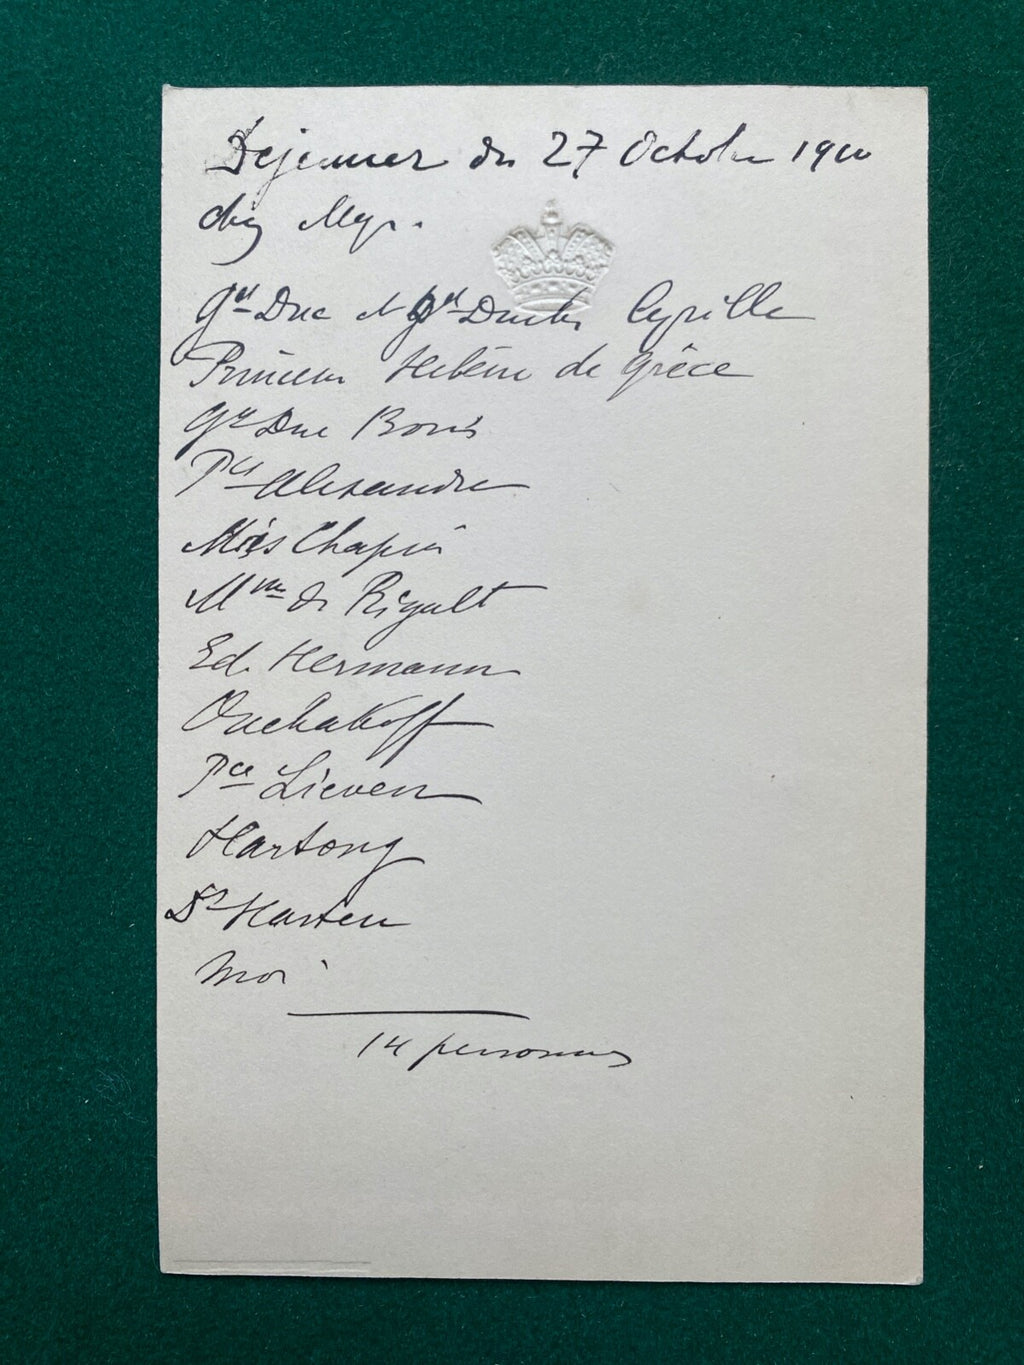 Dejeuner du 27 Octobre 1910
chez Mgr.
Gd Duc et Gd Duchss Cyrille
Princesse Helène de Grèce
Gd Duc Boris
Pce Alexandre
Miss Chapin
Mme de Rigault
Ed. Hermann
Ouchakoff
Pce Lieven
Hartong
Dr Harten
Moi
14 personnes